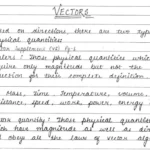 VECTORS
ed on direction, there are two typ
physical quantities
: Those physical quantities which
quire only magnitude but not the
ection for their complete definition
Mass, Time, Temperature, Volume,
istance, speed, work, power, energy
quantity: Those physical quantities
ch have magnitude as well as dir
obey all the laws of vector alg